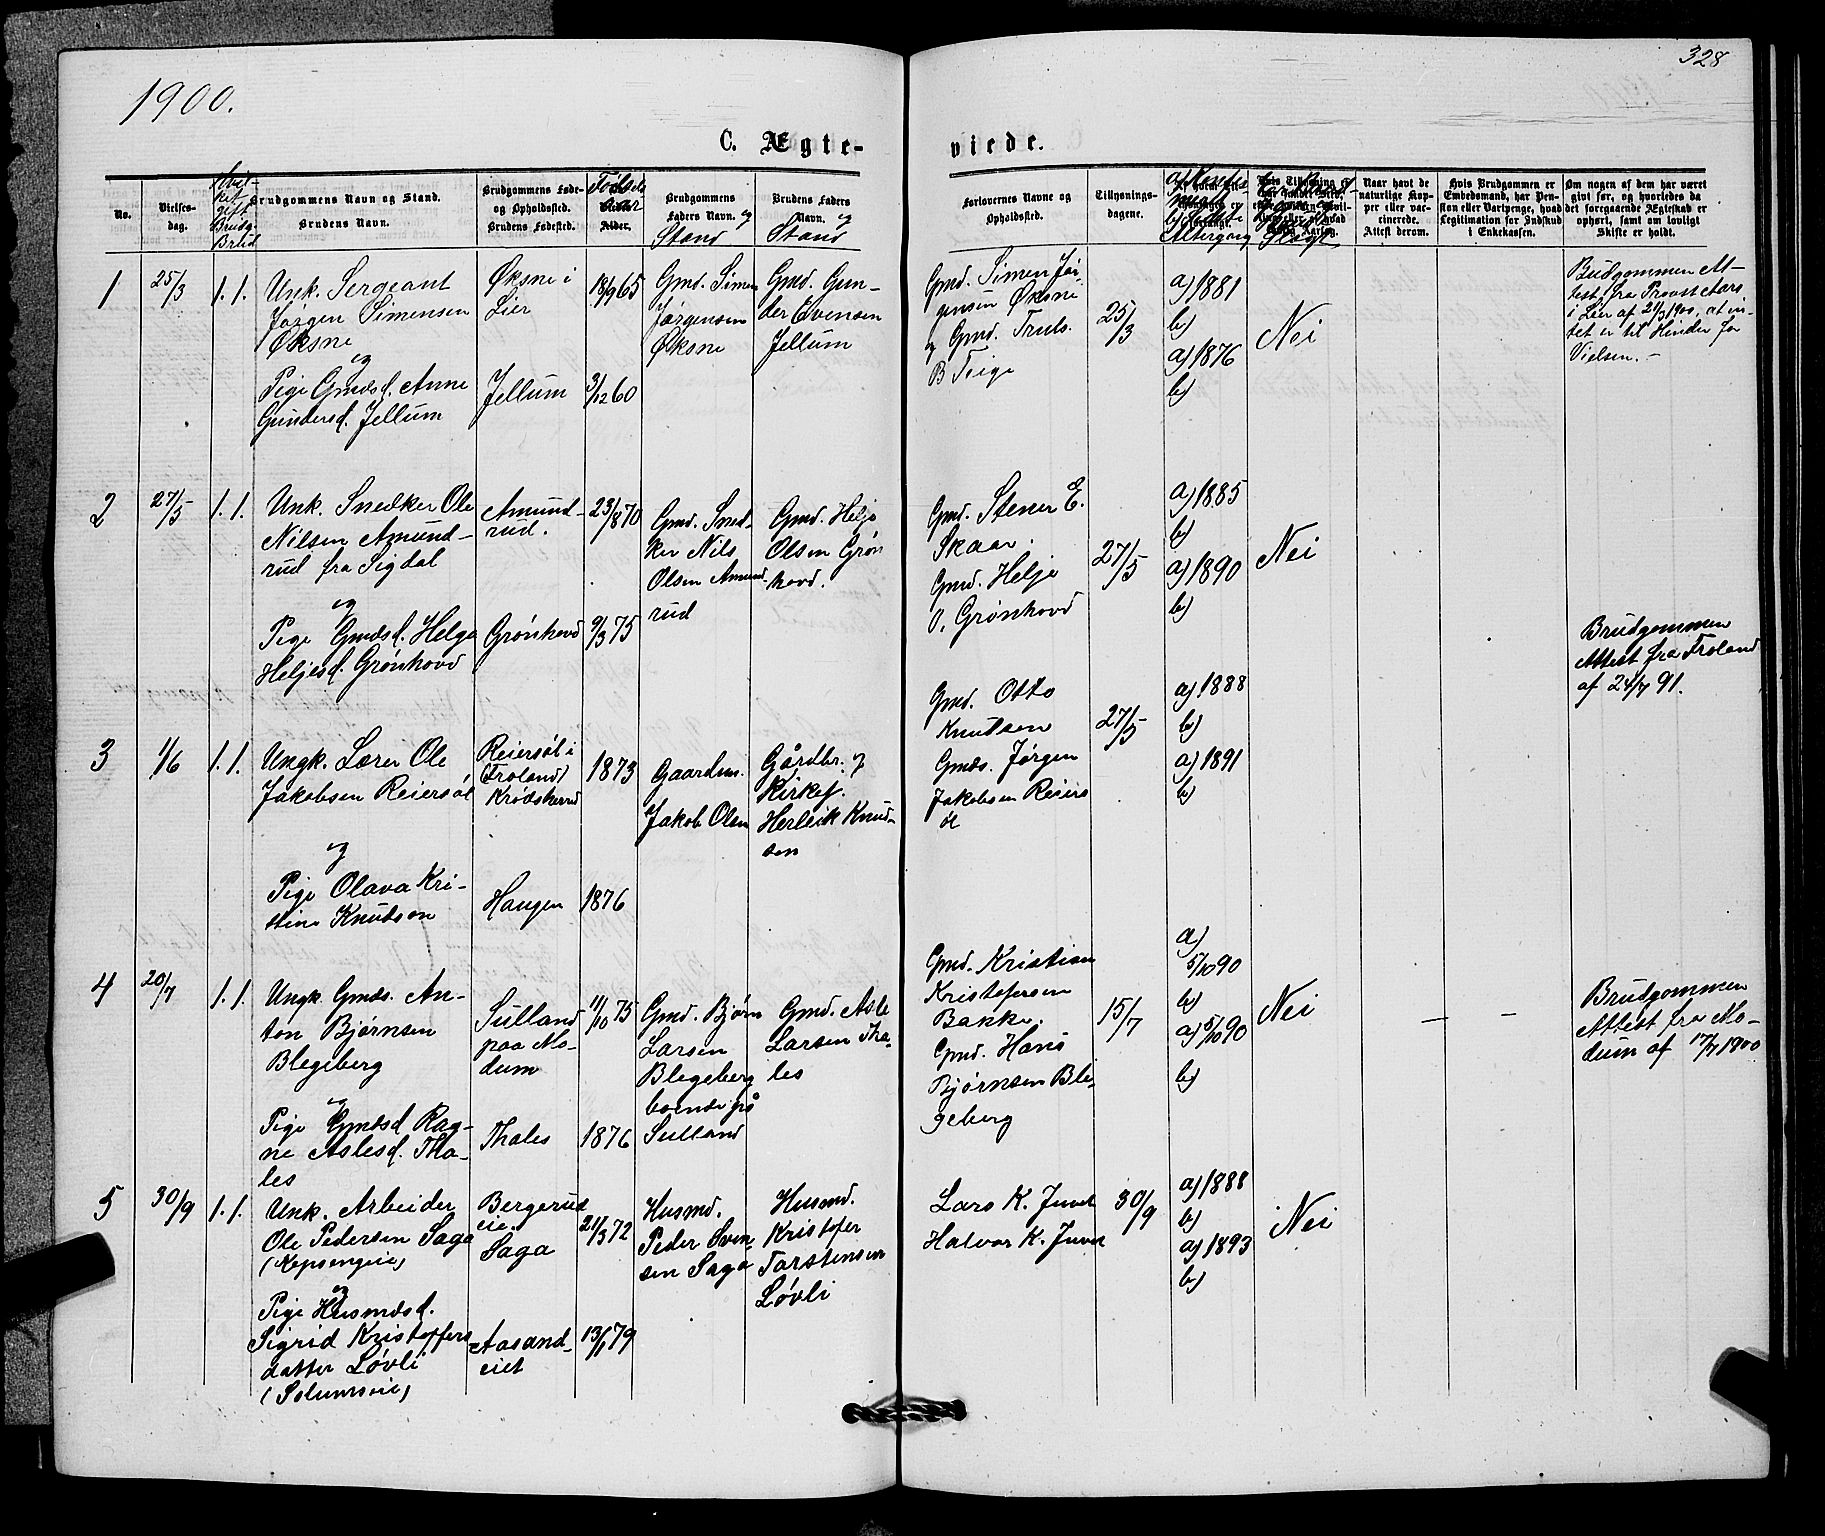 1900.
328
C. Ægte-
viede.
No.
Vielses-
dag.
Brudgommens Navn og Stand.
Brudens Navn.
Brudgommens Føde-
og Opholdssted.
Brudens Fødested.
Fødsels
Alder.
Brudgommens
Faders Navn. og
Stand
Brudens Faders
Navn. og
Stand
Forlovernes Navne og
Opholdssted.
Tillysnings-
dagene.
Naar havt de
naturlige Kop-
per eller vac-
cinerede.
Attest derom.
Hvis Brudgommen er
Embedsmand, har Pen-
sion eller Vartpenge, hvad
Legitimation for Indskud
i Enkekassen.
Om nogen af dem har været
gift før, og hvorledes da
det foregaaende Ægteskab er
ophørt, samt om lovligt
Skifte er holdt.
1
25/3
1. 1.
Unk. Sergeant
Jørgen Simensen
Øksne
og
Pige Gmdsd. Anne
Gundersd. Jellum
Øksne i
Lier
Jellum
18/9 65
3/12 60
Gmd. Simen
Jørgensen
Øksne
Gmd. Gun-
der Evensen
Jellum
Gmd. Simen Jør-
gensen Øksne
og Gmd. Truls
B Teige
25/3
a) 1881
b)
a) 1876
b)
Nei
Brudgommen At-
test fra Provst Aars
i Lier af 21/3 1900, at in-
tet er til Hinder for
Vielsen. -
2
27/5
1. 1.
Unk. Snedker Ole
Nilsen Amund-
rud fra Sigdal
og
Pige Gmdsd. Helga
Heljesd. Grønhovd
Amund-
rud.
Grønhovd
23/8 70
9/3 75
Gmd. Sned-
ker Nils
Olsen Amund-
rud
Gmd. Helje
Olsen Grøn
hovd.
Gmd. Stener E.
Skaar.
Gmd. Helje
O. Grønhovd
27/5
a) 1885
b)
a) 1890
b)
Nei
3
1/6
1. 1.
Ungk. Lærer Ole
Jakobsen Reiersøl
og
Pige Olava Kri-
stine Knudson
Reiersøl i
(Froland)
Krødsherred
Haugen
1873
1876
Gaardm.
Jakob Olsen
Gårdbr. og
Kirkes.
Herleik Knud-
sen
Gmd. Otto
Knudsen
Gmds. Jørgen
Jakobsen Reiers
øl
27/5
a) 1888
b)
a) 1891
b)
Brudgommen
Attest fra Froland
af 24/7 91.
4
20/7
1. 1.
Ungk. Gmds. An-
ton Bjørnsen
Blegeberg
og
Pige Gmdsd Rag-
ne Aslesd. Tha-
les
Sulland
paa Mo-
dum
Thales
11/10 75
1876
Gmd. Bjørn
Larsen
Blegeberg
boende på
Sulland
Gmd. Asle
Larsen Tha-
les
Gmd. Kristian
Kristofersen
Bakke.
Gmd. Hans
Bjørnsen Ble-
geberg
15/7
a)
5/10 90
b)
a) 5/10 90
b)
Nei
Brudgommen
Attest fra Mo-
dum af 17/7 1900
5
30/9
1. 1.
Unk. Arbeider
Ole Pedersen Saga
(Kopsengeie)
og
Pige Husmdsd.
Sigrid Kristoffers
datter Løvli
(Solumseie)
Bergerud
eie.
Saga
Aasand-
eiet
21/3 72
13/1 79
Husmd.
Peder Even-
sen Saga
Husmd.
Kristofer
Torstensen
Løvli
Lars K. Juvet
Halvor K. Juvet
30/9
a) 1888
b)
a) 1893
b)
Nei